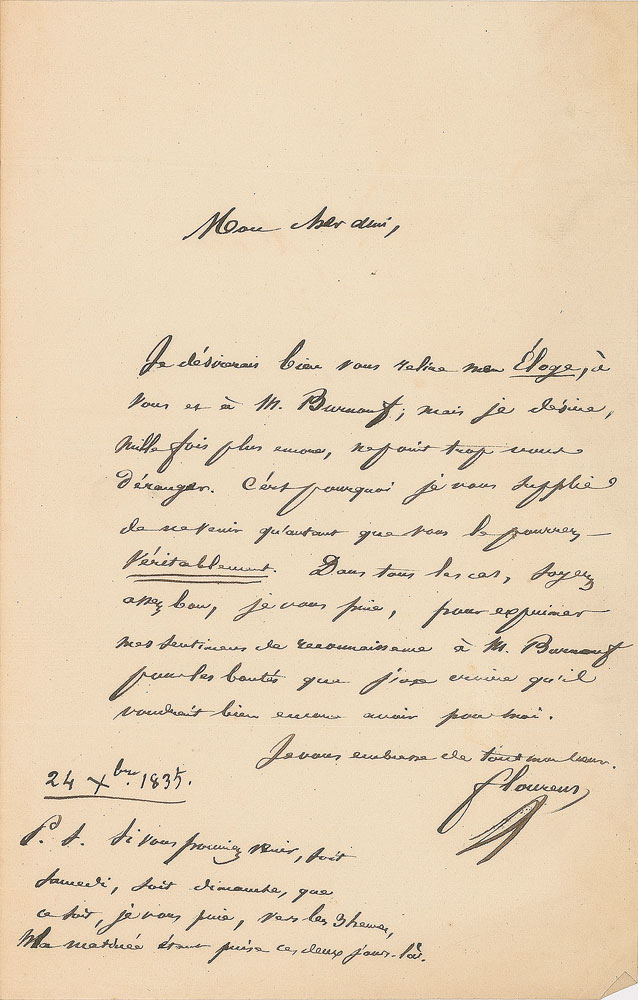 Mon cher ami,
Je désirerais bien vous relire mon Éloge, à
vous et à M. Burnouf; mais je désire,
mille fois plus encore, ne point trop vous
déranger. C'est pourquoi je vous supplie
de ne venir qu'autant que vous le pourrez
véritablement. Dans tous les cas, soyez
assez bon, je vous prie, pour exprimer
mes sentimens de reconnaissance à M. Burnouf
pour les bontés que j'ose croire qu'il
voudrait bien encore avoir pour moi.
Je vous embrasse de tout mon cœur.
Flourens
24 Xbre. 1835.
P. S. Si vous pouviez venir, soit
samedi, soit dimanche, que
ce soit, je vous prie, vers les 3 heures,
Ma matinée étant prise ces deux jours-là.